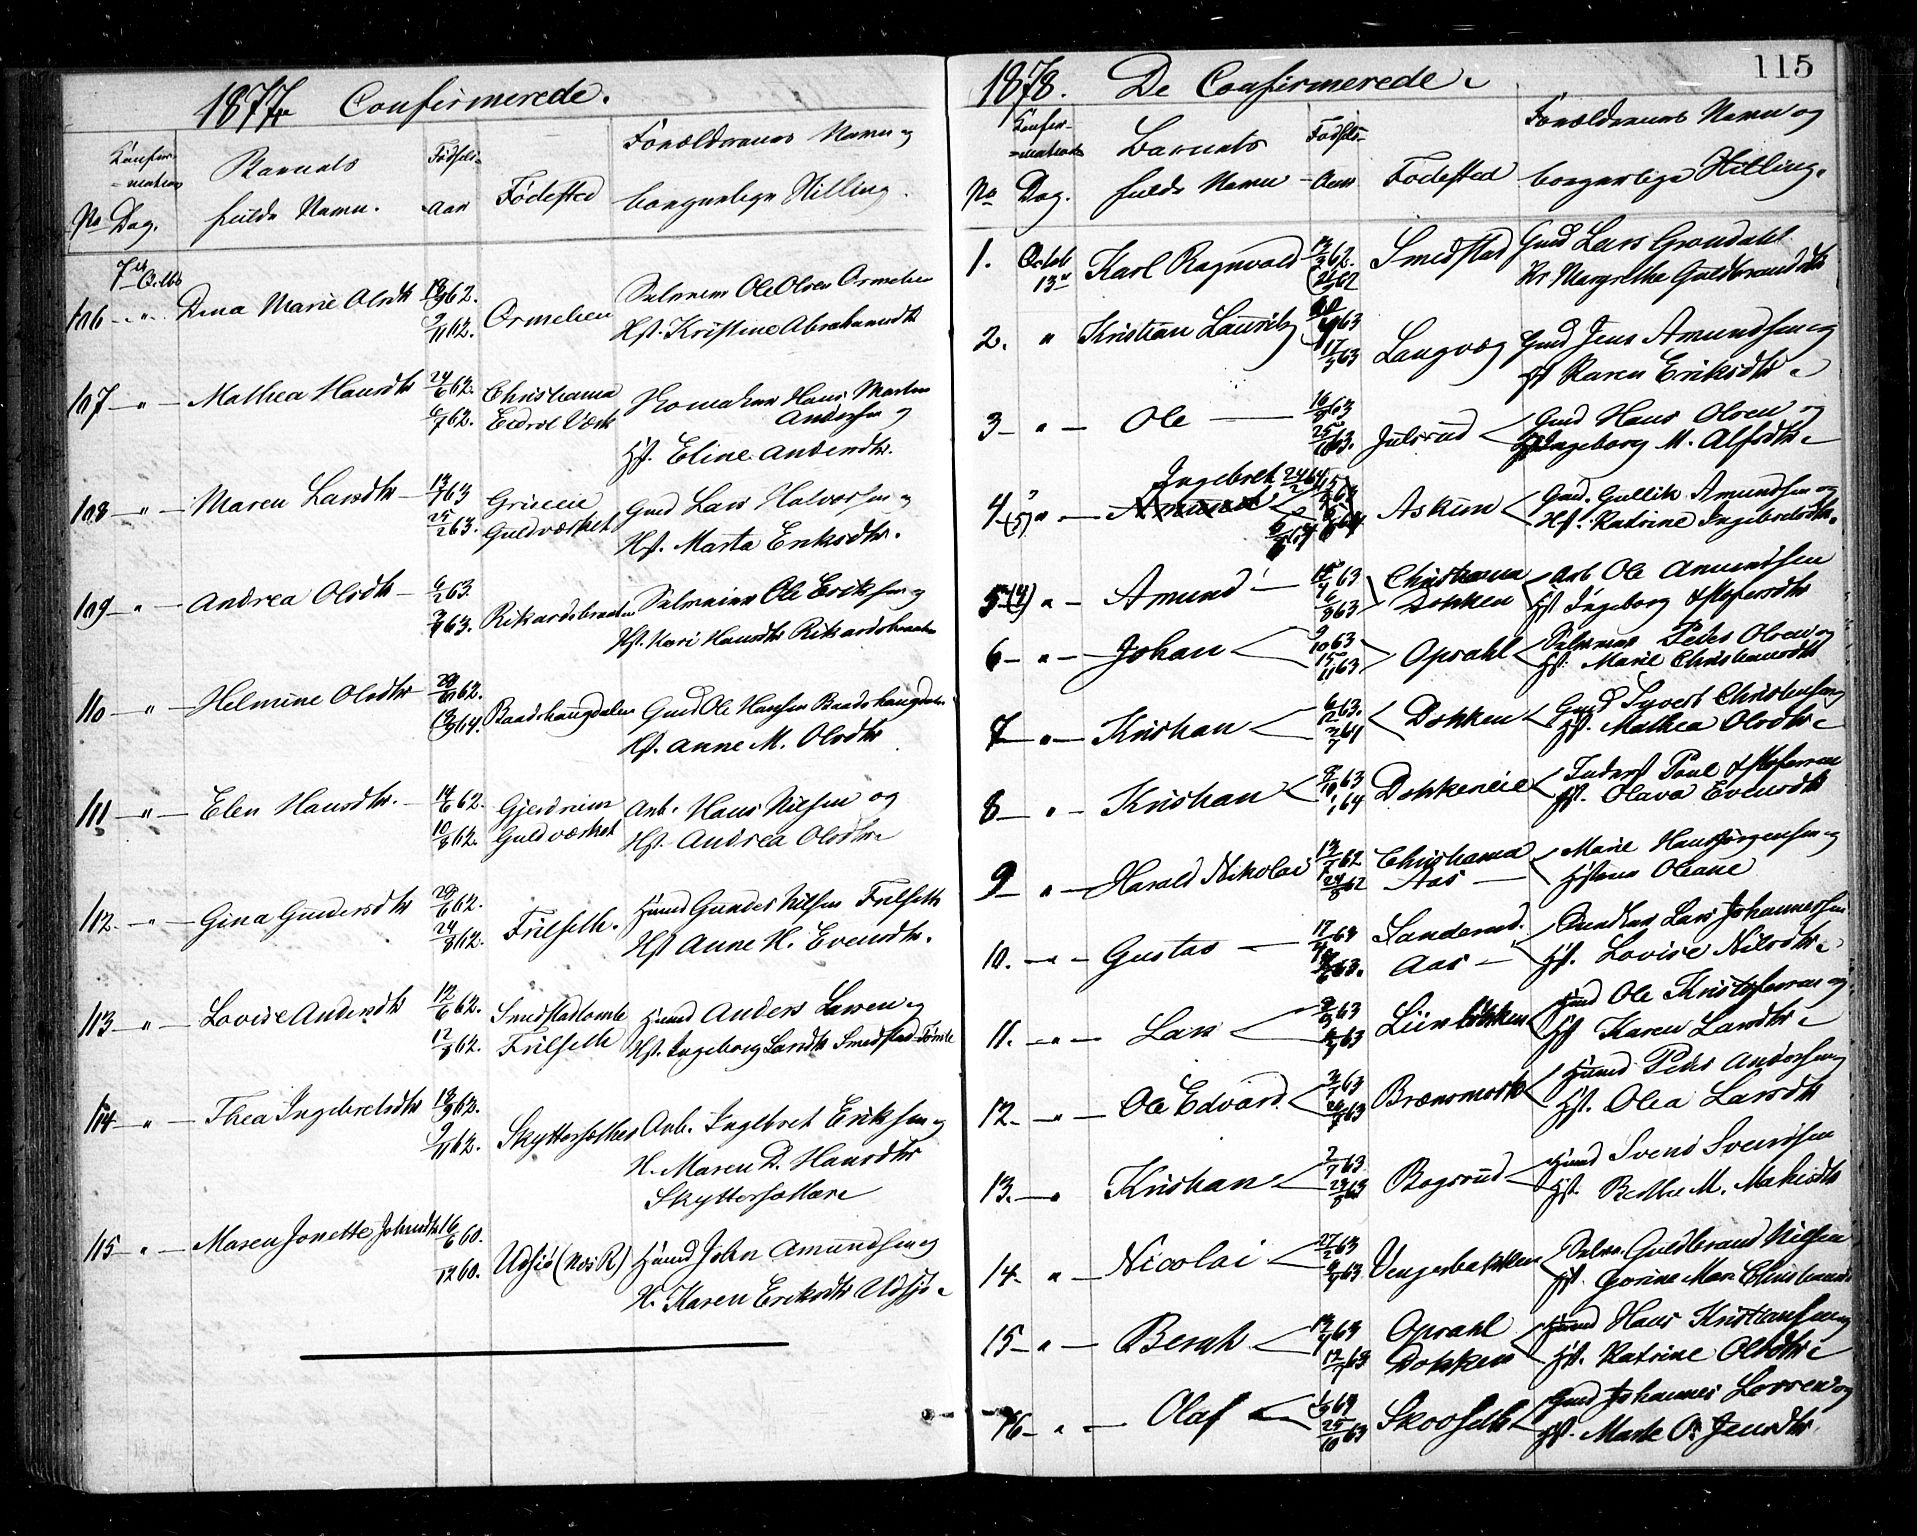 1877. Confirmerede.
Konfir-
=mations
No Dag.
Barnets
fulde Navn.
Fødsels-
Aar
Fødested
Forældrenes Navn og
borgerlige Stilling.
7de Octbr
106 - " - Dina Marie Olsdtr
62.
62.
Ormelien
Selveier Ole Olsen Ormelien
Hst. Kristine Abrahamsdtr
107 - " - Mathea Hansdtr
24/6 62.
6/7 62.
Christiania
Eidsvol Værk
Hans Martin
Andersen og
Hst. Eline Andersdtr.
108 - " - Maren Larsdtr -
63
25/2 63.
Grueue
Guldværket
Gmd Lars Halvorsen og
Hst. Marta Eriksdtr.
109 - " - Andrea Olsdtr -
6/2 63.
63.
Rikardsbraaten
Selveier Ole Eriksen og
Hst. Kari Hansdtr Rikardsbraaten
110 - " - Helmine Olsdtr
62.
Baadshaugdalen
Gmd Ole Hansen Baadshaugdalen
Hst. Anne M. Olsdtr
111 - " - Elen Hansdtr. -
14/6 62.
10/8 62.
Gjerdrum
Guldværket
Arb. Hans Nilsen og
Hst. Andrea Olsdtr.
112. - " - Gina Gundersdtr
29/6 62.
24/8 62.
Fulseth.
Huusd Gunder Nilsen Fulseth
Hst Anne H. Evensdtr.
113 - " - Lovise Andersdtr
12/6 62.
17/8 62.
Smedstadtomte
Fulseth
Huusd Anders Larsen og
Hst. Ingeborg Larsdtr Smedstad-Tomte
114 - " - Thea Ingebretsdtr
62.
9/11 62.
Skyttersæther
Arb. Ingebret Eriksen og
H. Maren D. Hansdtr
Skyttersæther
115 - " - Maren Jonette Johnsdtr
16/6 60.
60.
Udsjø (Nes R)
Huusd John Amundsen og
H. Karen Eriksdtr Udsjø.
115
1878. De Confirmerede.
Konfir-
=mations
No Dag.
Barnets
fulde Navn
Fødsels-
Aar
Fødested
Forældrenes Navn og
borgerlige Stilling.
1. Octob
13de
Karl Ragnvald
62.
62
Smedstad
Gmd Lars Grøndahl
Margrethe Guldbrandsdtr
2. " Kristian Lauritz
63
17/5 63
Langvæg
Gmd Jens Amundsen og
Hst Karen Eriksdtr
3 - " - Ole
63
63.
Julsrud
Gmd Hans Olsen og
Hst Ingeborg M. Alfsdtr.
Ingebret
4 (5) " - Amund
Askum
Gmd. Gullik Amundsen og
Hst. Katrine Ingebretsdtr.
5 (4) " - Amund -
63
63
Christiania
Dokken
Arb Ole Amundsen
Hst Ingeborg Kristofersdtr
6 - " - Johan
9/10 63
15/11 63
Opsahl
Selveier Peder Olsen og
Hst. Marie Christiansdtr
7 - " - Kristian
6/12 63.
64
Dokken
Gmd Syvert Christensen og
Hst. Mathea Olsdtr
8 - " - Kristian
63
64
Dokkeneie
Inderst Poul Kristofersen
Hst. Olava Evensdtr
9 - " - Harald Nikolai
62
24/8 62
Christiania
Aas -
Marie Hans Jørgensen og
Oleane
10. - " - Gustav -
63
63.
Sanderud.
Aas -
Lars Johannessen
Hst. Lovise Nilsdtr
11. - " - Lars
63
63
Liin
Huusd Ole Kristofersen og
Hst Karen Larsdtr
12. - " - Ole Edvard.
63
63
Brænsmork
Huusd Peder Andersen og
Hst. Olea Larsdtr
13. - " Kristian
2/7 63
23/8 63
Bogsrud
Huusd Svend Svendsen
Hst. Berthe M. Mathisdtr
14. " - Nicolai
27/2 63
63
Vengerbakken
Selve. Guldbrand Nilsen
Hst. Gorine Mar. Christiansd
15 - " - Bernt
63
12/7 63
Opsahl
Dokken
Huusd Hans Kristiansen og
Hst. Katrine Olsdtr
16 - " - Olaf
63
25/10 63
Skovseth
Gmd Johannes Larsen og
Hst. Marte O. Jensdtr